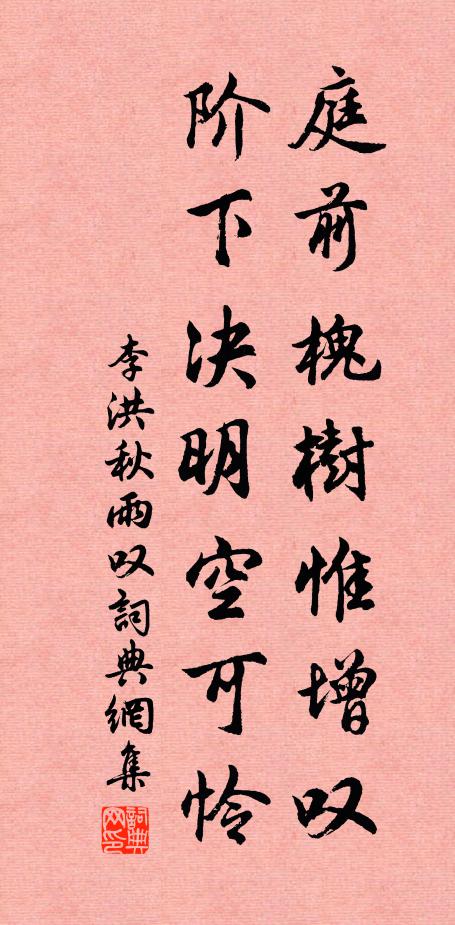 庭前槐樹惟增叹
阶下决明空可怜
李洪秋雨叹詞典網集
詞典网印